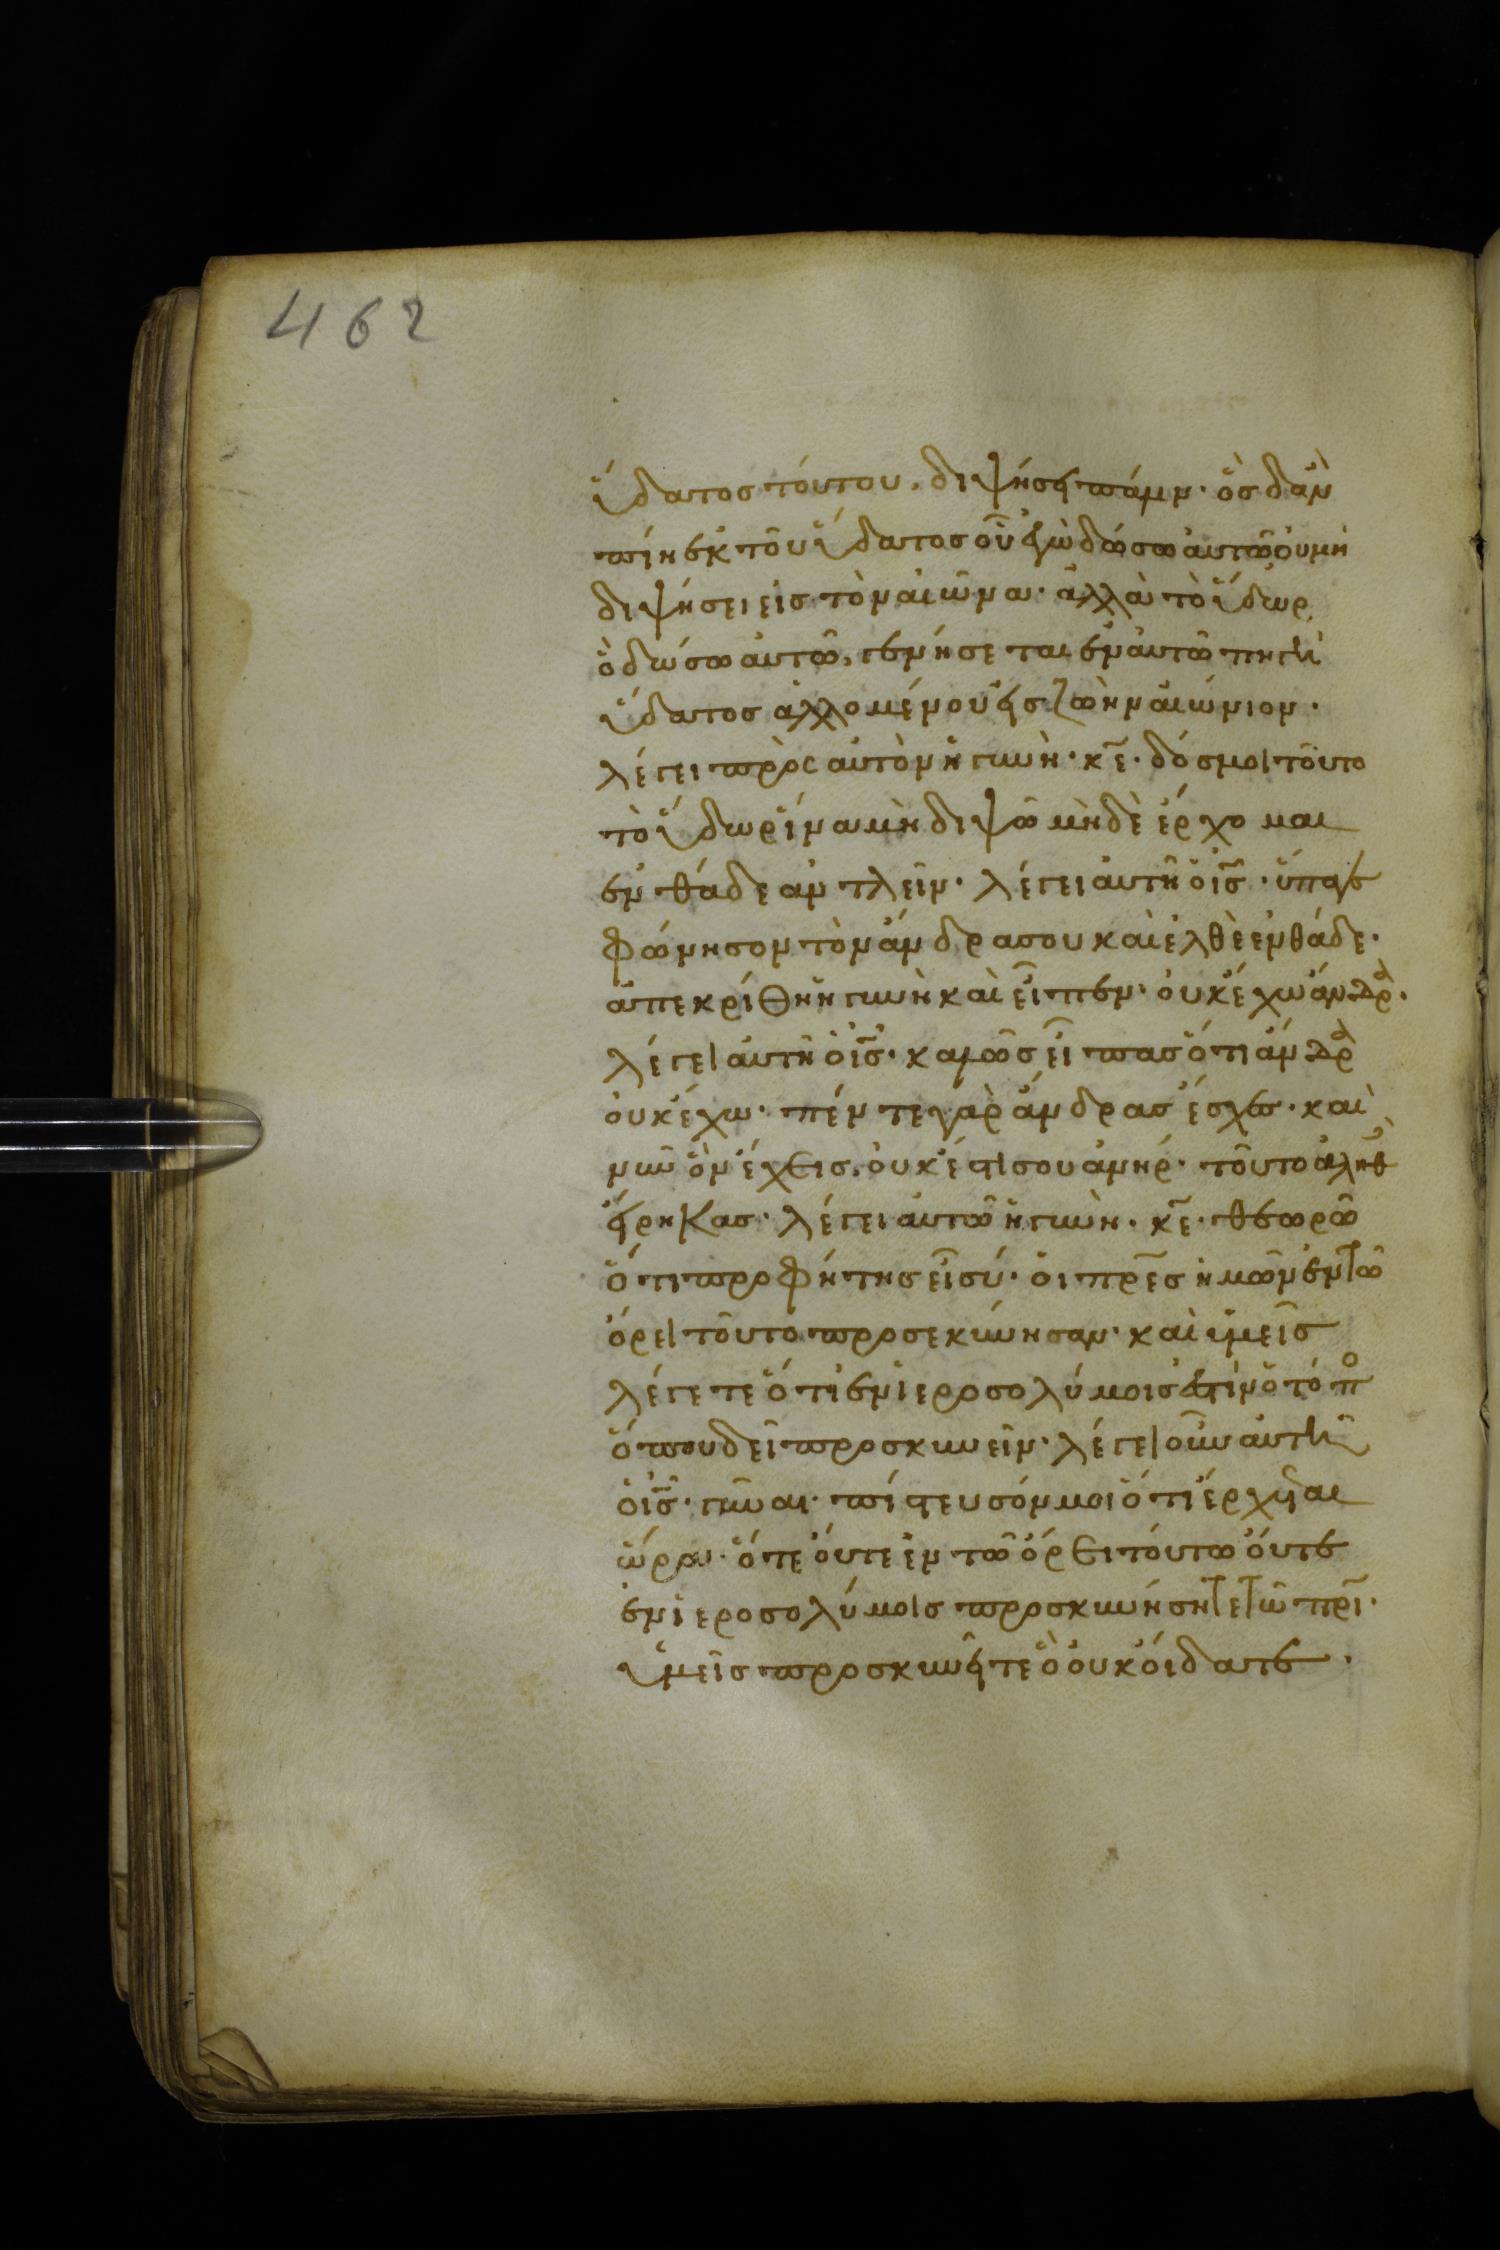 462
ὕδατος τούτου, διψήσει πάλιν· ὃς δ' ἂν
πίη ἐκ τοῦ ὕδατος οὗ ἐγὼ δώσω αὐτῶ οὐ μὴ
διψήσει εἰς τὸν αἰῶνα· ἀλλὰ τὸ ὕδωρ
ὃ δώσω αὐτῶ, γενήσεται ἐν αὐτῶ πηγὴ
ὕδατος ἁλλομένου εἰς ζωὴν αἰώνιον·
λέγει πρὸς αὐτὸν ἡ γυνὴ· κ̅ε̅· δός μοι τοῦτο
τὸ ὕδωρ ἵνα μὴ διψῶ μὴδὲ ἔρχομαι
ἐνθάδε ἀντλεῖν· λέγει αὐτῆ ὁ ι̅ς̅· ὕπαγε
φώνησον τὸν ἄνδρα σου καὶ ἐλθὲ ἐνθάδε·
ἀπεκρίθη ἡ γυνὴ καὶ εἶπεν· οὐκ ἔχω ἄνδρα·
λέγει αὐτῆ ὁ ι̅ς̅· καλῶς εἶπας ὅτι ἄνδρα
οὐκ ἔχω· πέντε γὰρ ἄνδρας ἔσχες· καὶ
νῦν ὃν ἔχεις, οὐκ ἔστι σου ἀνήρ· τοῦτο ἀληθὲς
εἴρηκας· λέγει αὐτῶ ἡ γυνὴ· κ̅ε̅· θεωρῶ
ὅτι προφήτης εἶ σύ· οἱ π̅ρ̅ε̅ς ἡμῶν ἐν τῶ
ὄρει τοῦτο προσεκύνησαν· καὶ ὑμεῖς
λέγετε ὅτι ἐν ἱεροσολύμοις ἐστὶν ὁ τόπο
ὅπου δεῖ προσκυνεῖν· λέγει οὖν αὐτῆ
ὁ ι̅ς̅· γῦναι· πίστευσόν μοι ὅτι ἔρχεται
ὥρα· ὅτε οὔτε ἐν τῶ ὄρει τούτω οὔτε
ἐν ἱεροσολύμοις προσκυνήσητε τῶ π̅ρ̅ι̅·
ὑμεῖς προσκυνεῖτε ὃ οὐκ οἴδατε·